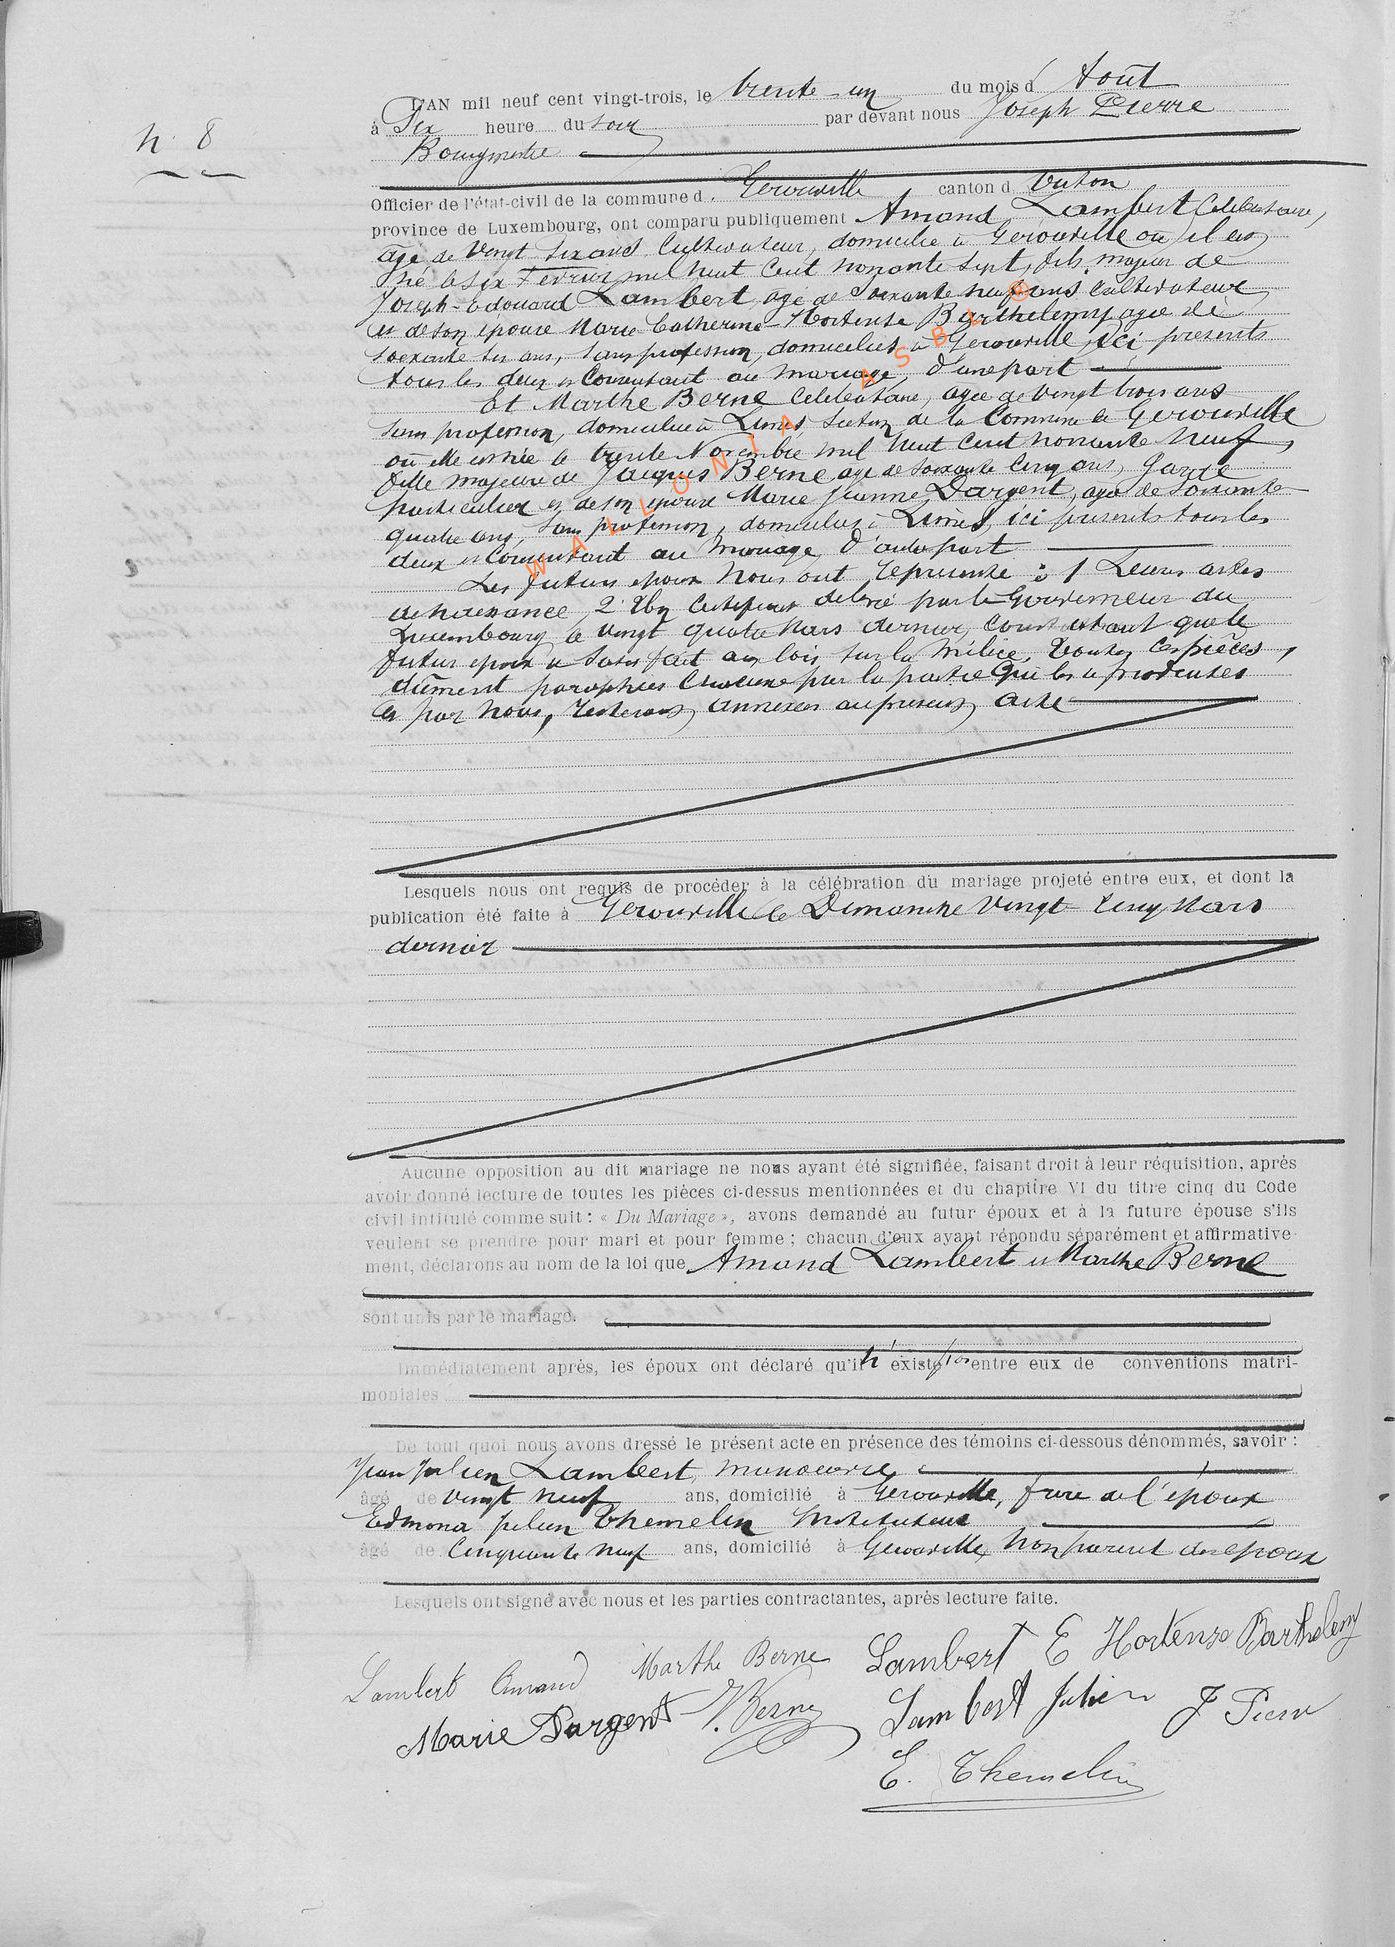 N° 8
L'AN mil neuf cent vingt-trois, le trente-un du mois d'Août
à Six heure du soir par devant nous Joseph Pierre
Bourgmestre
Officier de l'état-civil de la commune d. Gérouville canton d Virton
province de Luxembourg, ont comparu publiquement Amand Lambert Célibataire,
âgé de vingt six ans Cultivateur, domicilié à Gérouville où il est
né le six Février mil huit cent nonante sept, fils majeur de
Joseph-Edouard Lambert, âgé de soixante neuf ans Cultivateur
et de son épouse Marie Catherine-Hortense Barthelemy agée de
soixante six ans, sans profession, domiciliés à Gérouville, ici présents
tous les deux et Consentant au mariage, d'une part
Et Marthe Berne Célibataire, agée de vingt trois ans
sans profession, domiciliée à Limes section de la Commune de Gérouville
où elle est née le trente Novembre mil huit cent nonante neuf,
fille majeure de Jacques Berne agé de soixante cinq ans, Garde
particulier et de son épouse Marie Jeanne Dargent, agée de soixante
quatre ans, sans profession, domiciliés à Limes, ici présents tous les
deux et Consentant au mariage d'autre part
Les futurs époux nous ont représenté : 1° Leurs actes
de naissance, 2° Un Certificat délivré par le Gouverneur du
Luxembourg le vingt quatre Mars dernier, Constatant que le
futur époux a satisfait aux lois sur la Milice. Toutes ces pièces,
dûment paraphées Chacune par la partie qui les a produites
et par nous, resteront annexées au présent acte
Lesquels nous ont requis de procéder à la célébration du mariage projeté entre eux, et dont la
publication été faite à Gérouville le Dimanche vingt Cinq Mars
dernier
Aucune opposition au dit mariage ne nous ayant été signifiée, faisant droit à leur réquisition, après
avoir donné lecture de toutes les pièces ci-dessus mentionnées et du chapitre VI du titre cinq du Code
civil intitulé comme suit : « Du Mariage », avons demandé au futur époux et à la future épouse s'ils
veulent se prendre pour mari et pour femme ; chacun d'eux ayant répondu séparément et affirmative-
ment, déclarons au nom de la loi que Amand Lambert et Marthe Berne
sont unis par le mariage.
Immédiatement après, les époux ont déclaré qu'il n'existe pas entre eux de conventions matri-
moniales
De tout quoi nous avons dressé le présent acte en présence des témoins ci-dessous dénommés, savoir :
Jean Julien Lambert, manoeuvre
âgé de vingt neuf ans, domicilié à Gérouville, frère de l'époux
Edmond Julien Themelin Instituteur
âgé de Cinquante neuf ans, domicilié à Gérouville, non parent des époux
Lesquels ont signé avec nous et les parties contractantes, après lecture faite.
Lambert Amand Marthe Berne Lambert E Hortense Barthelemy
Marie Dargent J. Berne Lambert Julien J Pierre
E. Themelin
WALLONIA ASBL ©